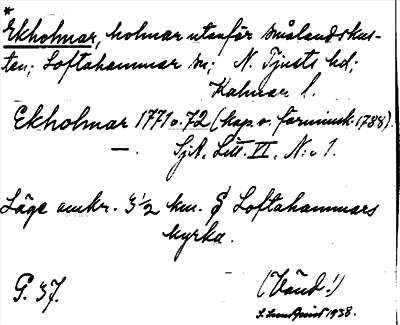 *
Ekholmar, holmar utanför smålandskus-
ten; Loftahammar sn; N. Tjusts hd;
Kalmar l.
Ekholmar 1771 o. 72 (kap. v. 1788).
— SjK. Litt. VI, N:o 1.
Läge omkr. 3 1/2 km. S Loftahammars
kyrka.
G. 37. (Vänd!)
S. Lundquist 1938.